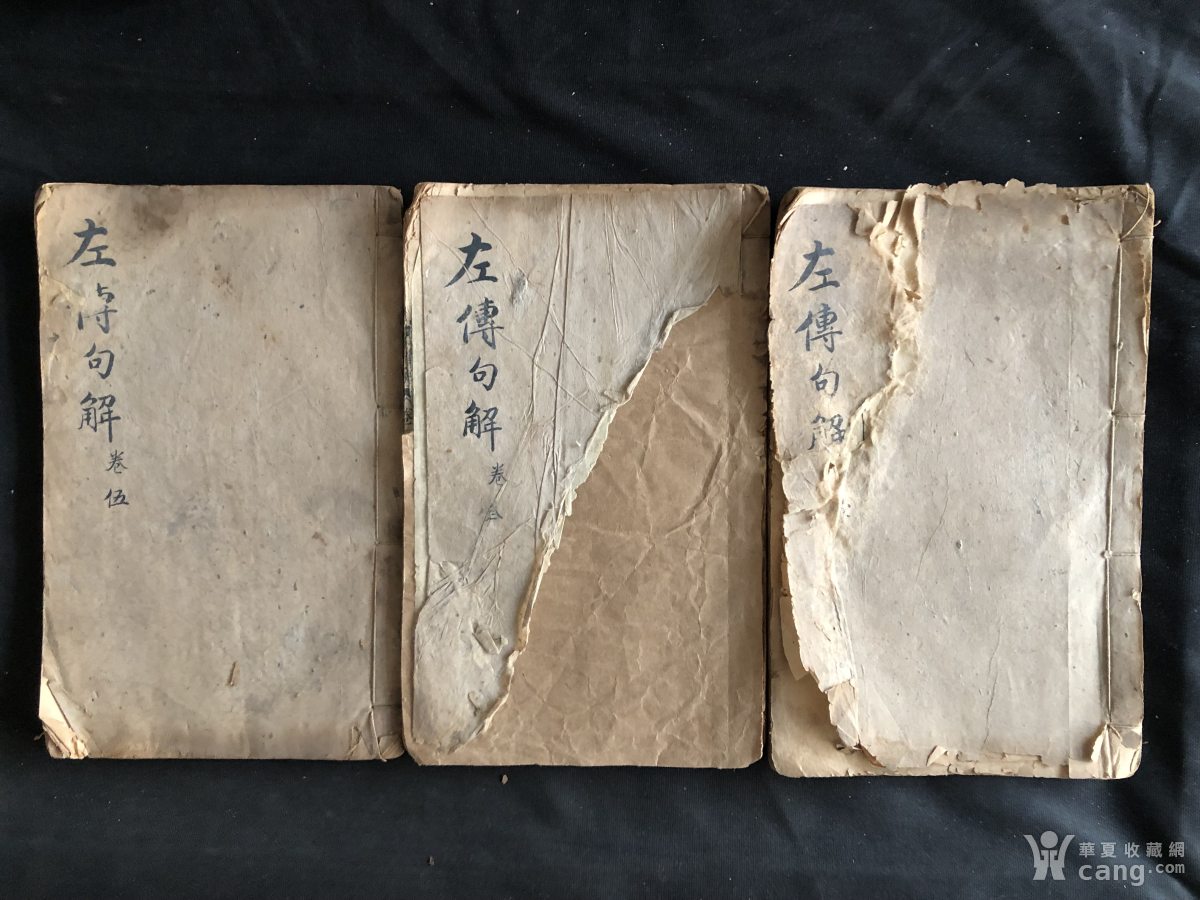 左傳句解
卷伍
左傳句解
卷
左傳句解
華夏收藏網
cang.com